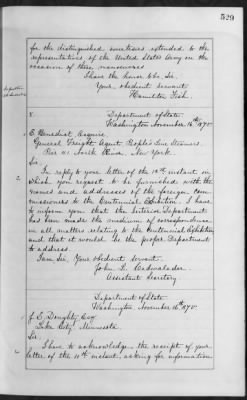 529
for the distinguished courtesies extended to the
representatives of the United States Army on the
occasion of these manoeuvres
I have the honor to be Sir,
Your obedient servant
Hamilton Fish.
Department of State
Washington November 16th 1875
E. Benedict Esquire
General Freight Agent People's Line Steamers.
Pier 41 North River, New York.
Sir:
In reply to your letter of the 10th instant in
which you request to be furnished with the
names and addresses of the foreign com
missioners to the Centennial Exhibition. I have
to inform you that the Interior Department
has been made the medium of correspondence
in all matters relating to the Centennial Exhibition
and that it would be the proper Department
to address.
I am Sir, Your obedient servant.
John L. Cadwalader.
Assistant Secretary
Department of State
Washington, November 16th 1875
Esq
Lake City Minnesota
Sir:
I have to acknowledge the receipt of your
letter of the 10th instant, asking for information